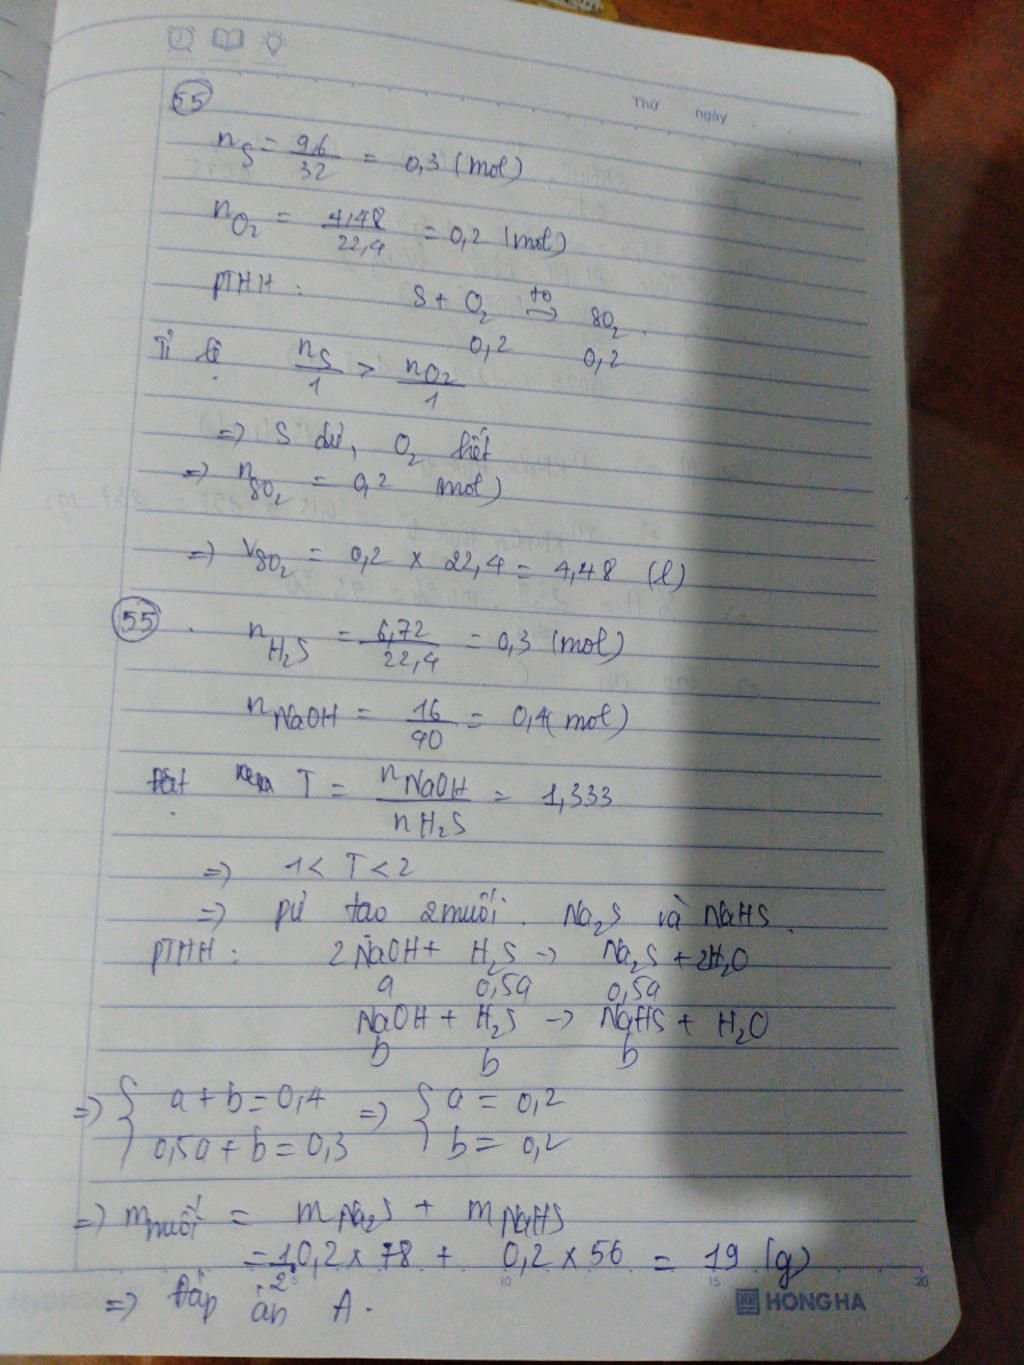 Thứ ngày
55
n_S = 9,6/32 = 0,3 (mol)
n_O₂ = 4,48/22,4 = 0,2 (mol)
PTHH: S + O₂ →(t°) SO₂.
0,2 0,2
Tỉ lệ n_S/1 > n_O₂/1
=> S dư, O₂ hết
=> n_SO₂ = 0,2 mol)
=> V_SO₂ = 0,2 × 22,4 = 4,48 (l)
55. n_H₂S = 6,72/22,4 = 0,3 (mol)
n_NaOH = 16/40 = 0,4 (mol)
Đặt T = n_NaOH/n_H₂S = 1,333
=> 1 < T < 2
=> pứ tạo 2 muối. Na₂S và NaHS.
PTHH: 2NaOH + H₂S -> Na₂S + 2H₂O
a 0,5a 0,5a
NaOH + H₂S -> NaHS + H₂O
b b b
=> { a + b = 0,4 => { a = 0,2
0,5a + b = 0,3 b = 0,2
=> m_muối = m_Na₂S + m_NaHS
= 1/2 0,2 × 78 + 0,2 × 56 = 19 (g)
=> Đáp án A.
5 10 15 20
HONG HA